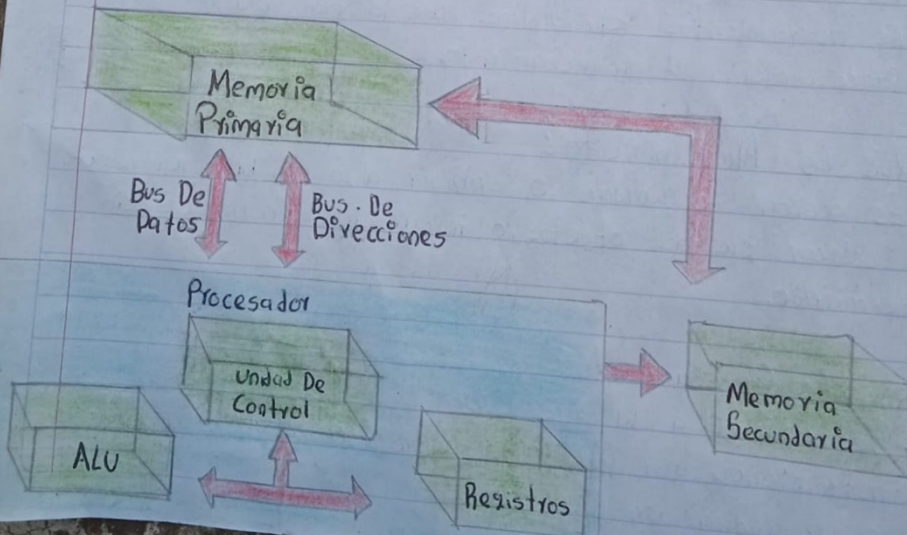 Memoria
Primaria
Bus De
Datos
Bus. De
Direcciones
Procesador
Unidad De
Control
ALU
Registros
Memoria
Secundaria